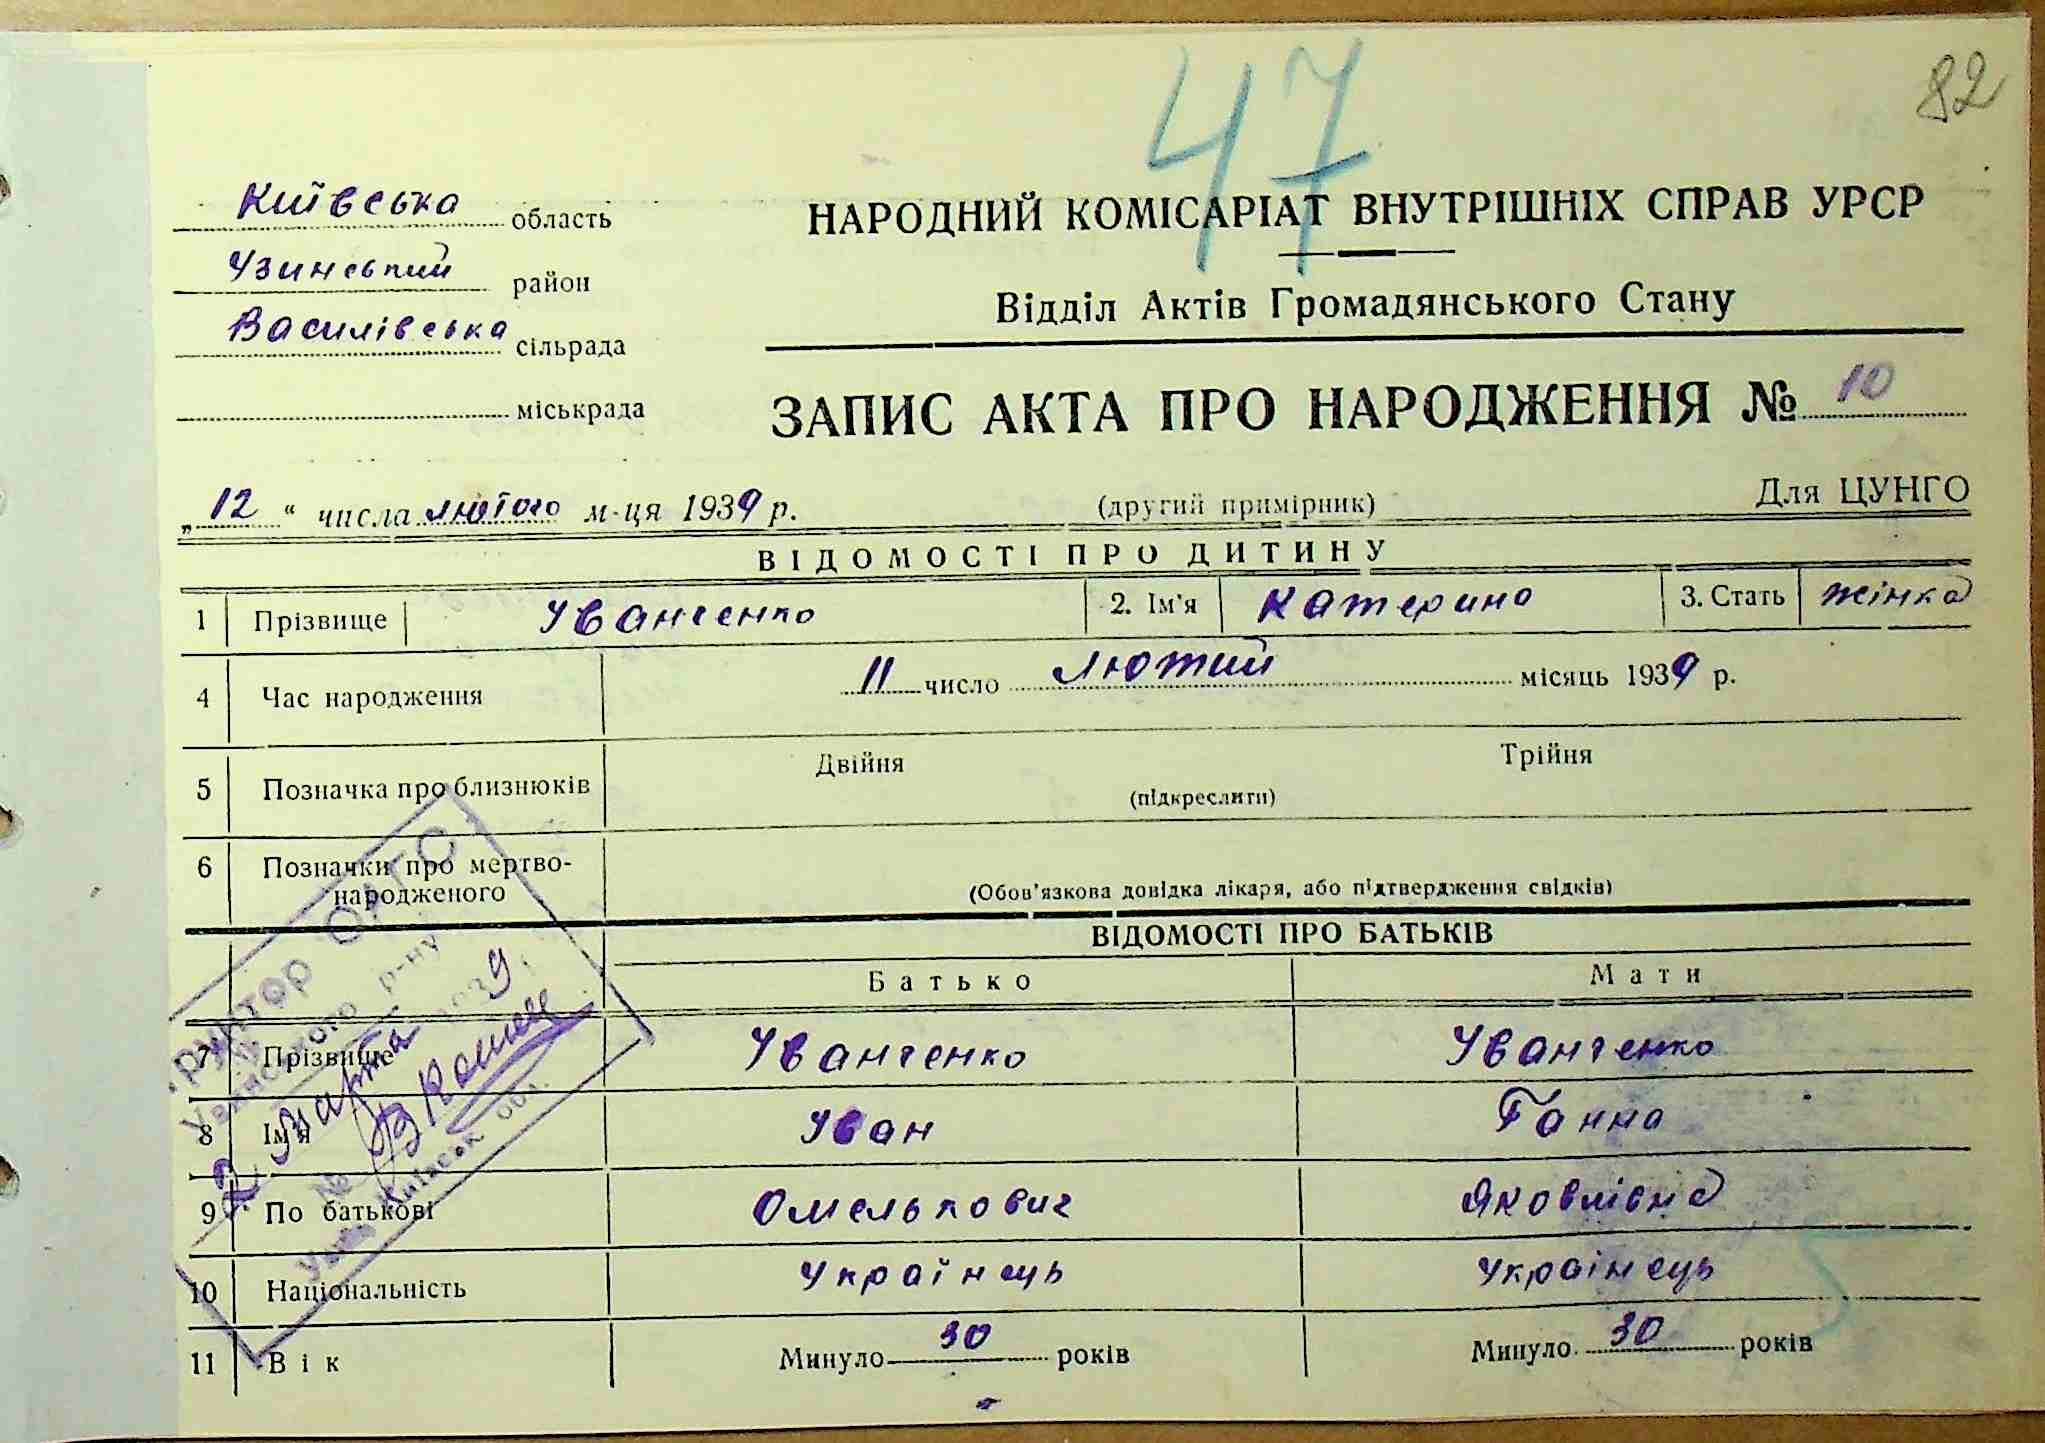 47
82
Київська область
Узинський район
Василівська сільрада
міськрада
НАРОДНИЙ КОМІСАРІАТ ВНУТРІШНІХ СПРАВ УРСР
Відділ Актів Громадянського Стану
ЗАПИС АКТА ПРО НАРОДЖЕННЯ № 10
„12“ числа лютого м-ця 1939 р. (другий примірник) Для ЦУНГО
ВІДОМОСТІ ПРО ДИТИНУ
1 Прізвище Уванченко 2. Ім'я Катерина 3. Стать жінка
4 Час народження 11 число лютий місяць 1939 р.
5 Позначка про близнюків Двійня Трійня
(підкреслити)
6 Позначки про мертво-
народженого (Обов'язкова довідка лікаря, або підтвердження свідків)
ВІДОМОСТІ ПРО БАТЬКІВ
Батько Мати
7 Прізвище Уванченко Уванченко
8 Ім'я Уван Ганна
9 По батькові Омелькович Яковлівна
10 Національність Українець Українець
11 Вік Минуло 30 років Минуло 30 років
ОАГС
р-ну
2 марта 1939
обл.